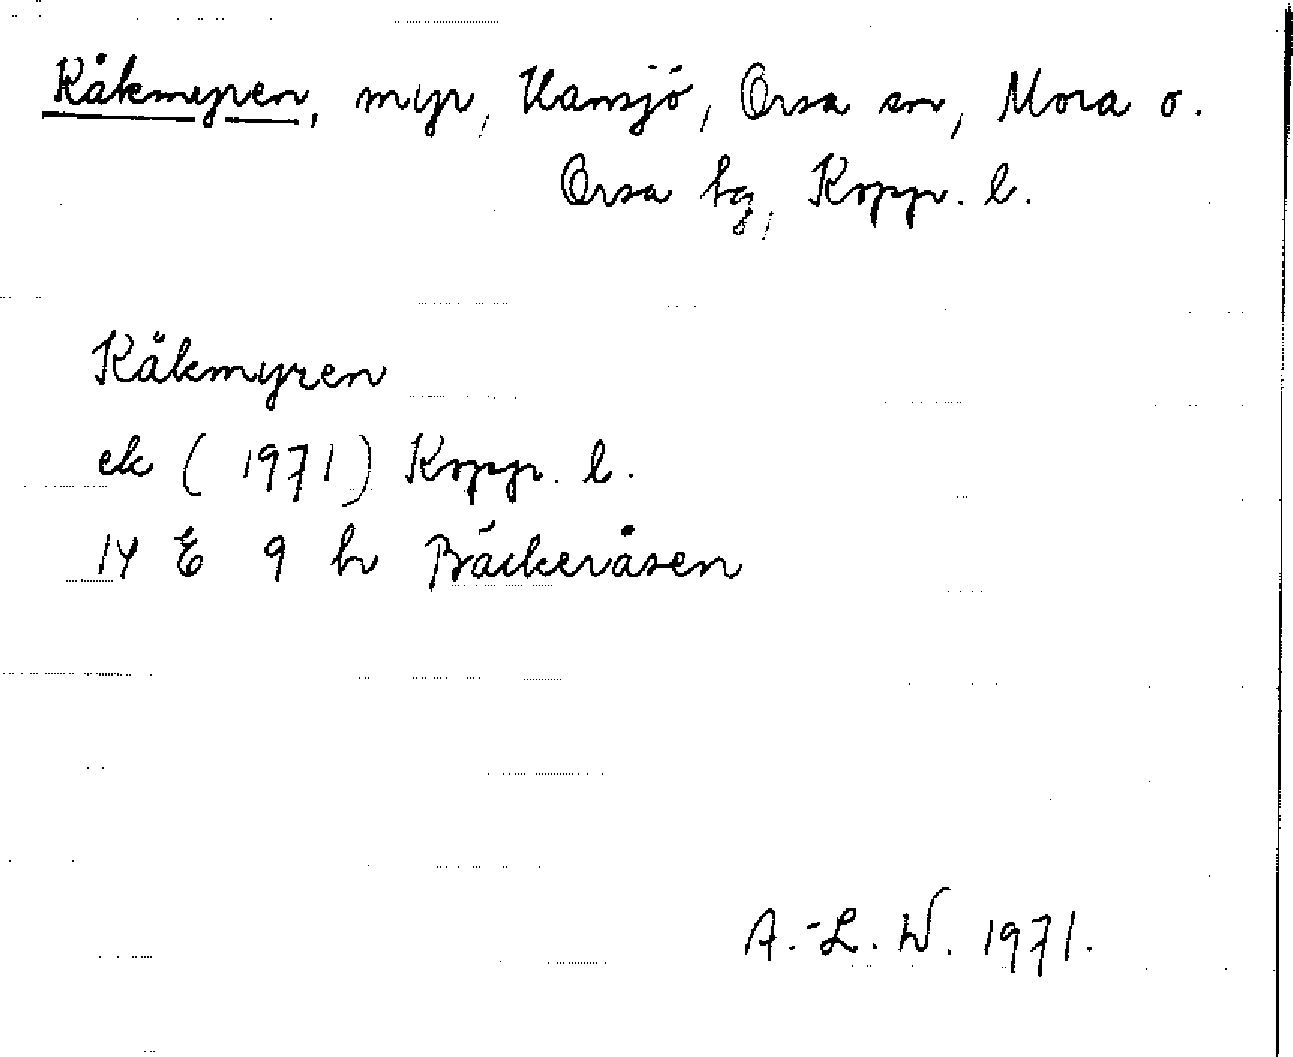 Råkmyren, myr, Hansjö, Orsa sn, Mora o.
Orsa tg, Kopp. l.
Räkmyren
ek (1971) Kopp. l.
14 E 9 h Bäckeråsen
A.-L. W. 1971.